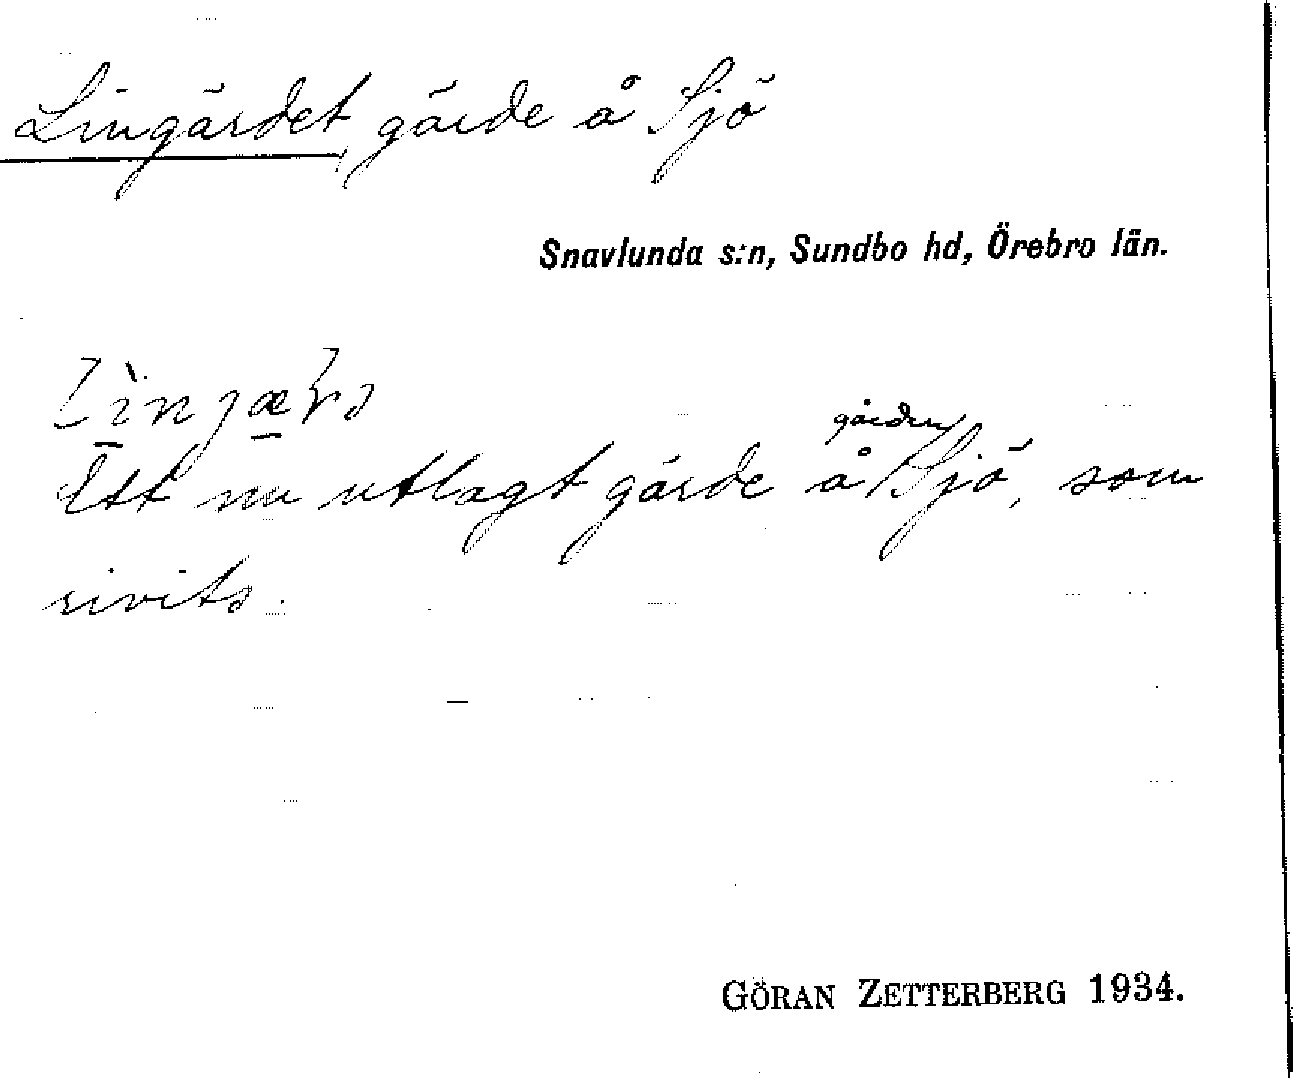 Lingärdet, gärde å Sjö
Snavlunda s:n, Sundbo hd, Örebro län.
gården
Ett nu utlagt gärde å Sjö, som
rivits.
GÖRAN ZETTERBERG 1934.